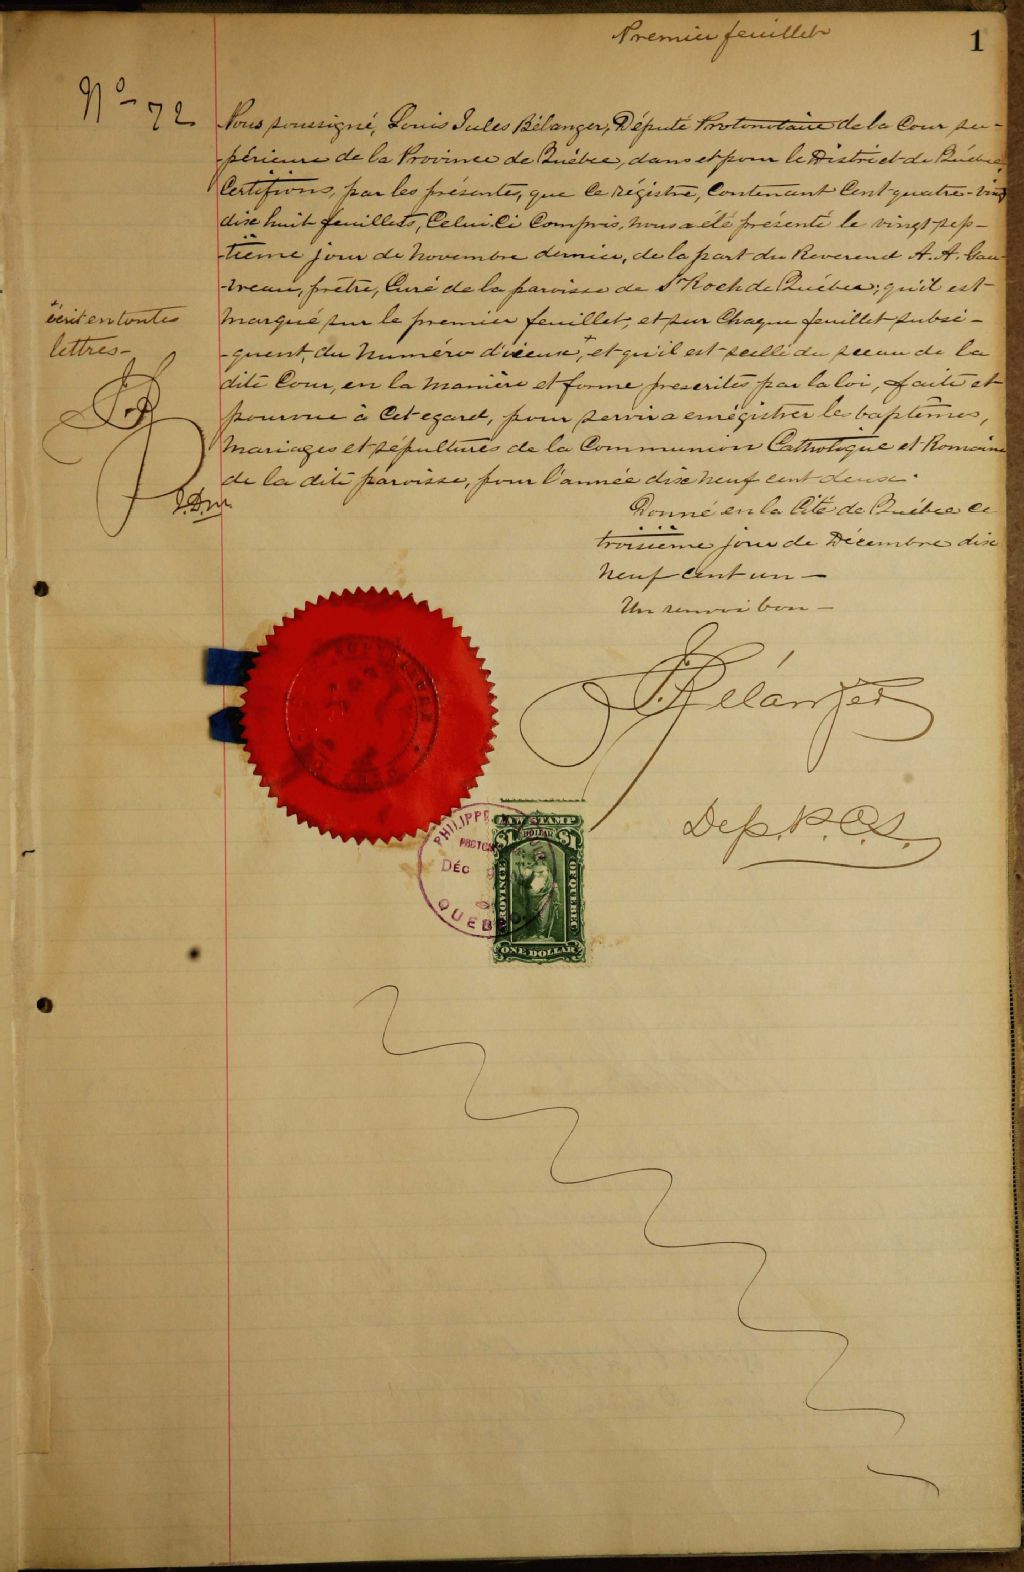 Premier feuillet
1
No 72
Nous soussigné, Louis Jules Bélanger, Député Protonotaire de la Cour su-
-périeure de la Province de Québec, dans et pour le District de Québec,
Certifions, par les présentes, que ce régistre, contenant Cent quatre-vingt
dix huit feuillets, Celui Ci Compris, nous a été présenté le vingt sep-
-tième jour de Novembre dernier, de la part du Reverend A. A. Gau-
-vreau, prêtre, Curé de la paroisse de St Roch de Québec; qu'il est
marqué sur le premier feuillet, et sur Chaque feuillet subsé-
-quent, du Numéro d'iceux+, et qu'il est scellé du sceau de la
dite Cour, en la manière et forme prescrites par la loi, faite et
pourvue à Cet egard, pour servir a enrégistrer les baptêmes,
Mariages et sépultures de la Communion Catholique et Romaine
de la dite paroisse, pour l'année dix neuf cent deux.
+ écrit en toutes
lettres-
J. B.
J. D. M.
Donné en la Cité de Québec ce
troisième jour de Décembre dix
neuf cent un —
Un renvoi bon —
J. Bélanger
Dep. P. C. S.
SUPERIEURE
PHILIPPE
PROTON
DÉC 9
QUEBEC
LAW STAMP
$1 DOLLAR $1
PROVINCE
OF QUEBEC
ONE DOLLAR